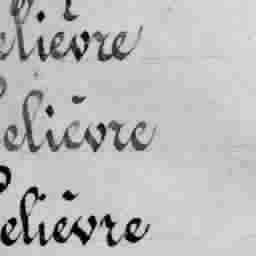 elièvre
elièvre
elièvre